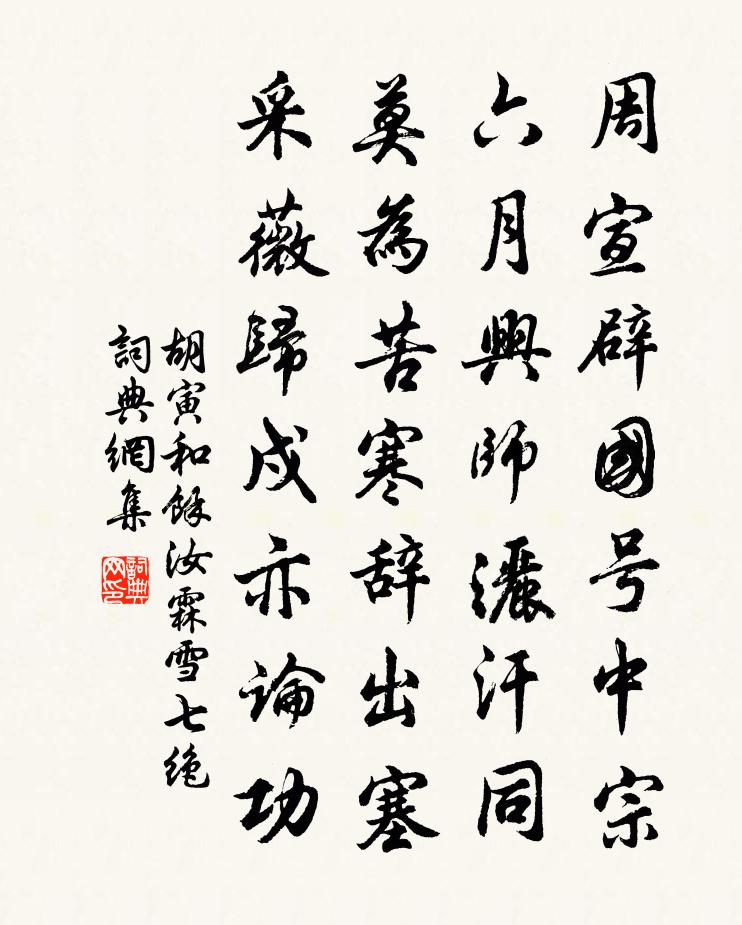 周宣辟國号中宗
六月興師灑汗同
莫為苦寒辞出塞
采薇歸戍亦論功
胡寅和餘汝霖雪七绝
詞典網集
詞典网印